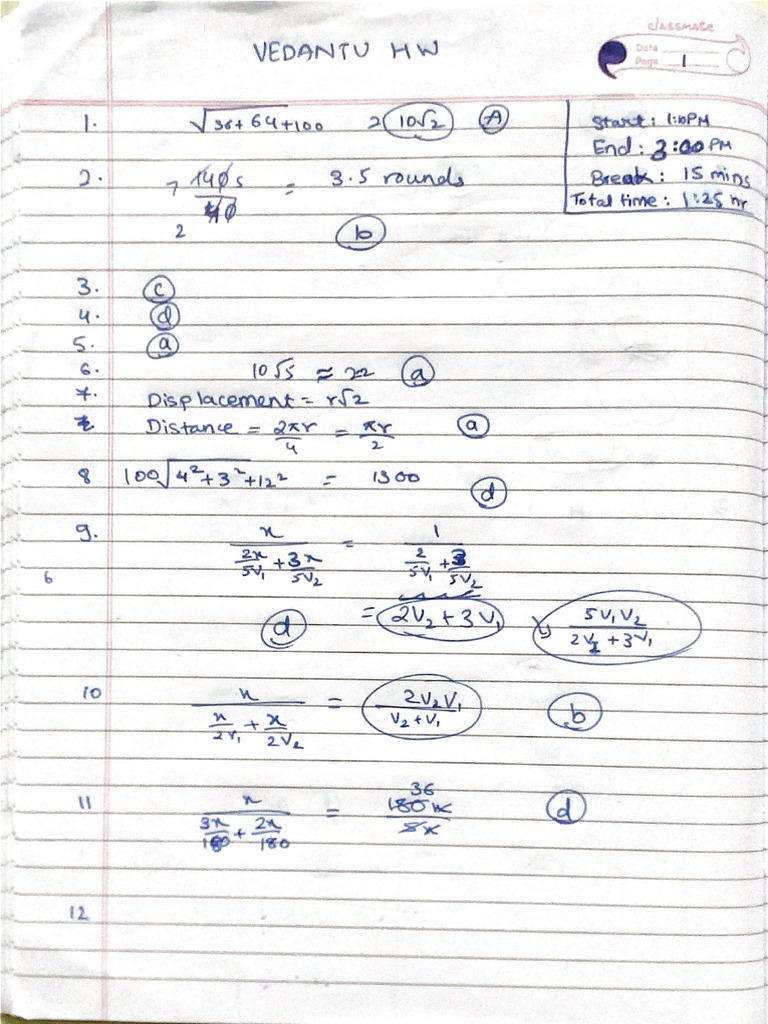 classmate
Date
Page 1
VEDANTU HW
Start: 1:10PM
End: 3:00 PM
Break: 15 mins
Total time: 1:25 hr
1. √36+64+100 = 10√2 (A)
2. 7 140s / 40 2 = 3.5 rounds
(b)
3. (c)
4. (d)
5. (a)
6. 10√5 ≈ 22 (a)
7. Displacement = r√2
Distance = 2πr/4 = πr/2 (a)
8 100√4²+3²+12² = 1300 (d)
9. x / (2x/5V₁ + 3x/5V₂) = 1 / (2/5V₁ + 3/5V₂)
6
(d) = 2V₂ + 3V₁ 5V₁V₂ / 2V₂ + 3V₁
10 x / (x/2V₁ + x/2V₂) = 2V₂V₁ / V₂+V₁ (b)
11 x / (3x/180 + 2x/180) = 36 180x / 5x (d)
12